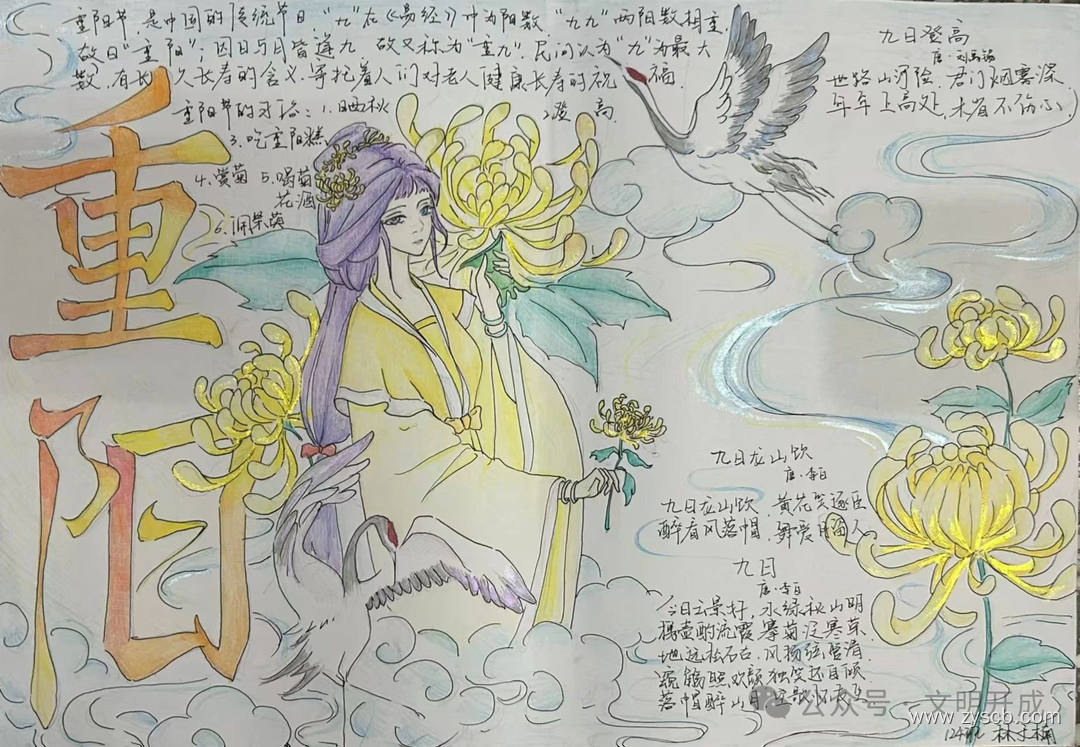 重阳节，是中国的传统节日，"九"在《易经》中为阳数，"九九"两阳数相重，
故曰"重阳"；因日与月皆逢九，故又称为"重九"。民间认为"九"为最大
数，有长久长寿的含义，寄托着人们对老人健康长寿的祝福。
重阳节的习俗：1.晒秋 2.登高
3.吃重阳糕
4.赏菊 5.喝菊
花酒
6.佩茱萸
重
阳
九日登高
唐·刘禹锡
世路山河险，君门烟雾深，
年年上高处，未省不伤心。
九日龙山饮
唐·李白
九日龙山饮，黄花笑逐臣
醉看风落帽，舞爱月留人
九日
唐·李白
今日云景好，水绿秋山明
携壶酌流霞 搴菊泛寒荣
地远松石古，风扬弦管清
窥觞照欢颜 独笑还自倾
落帽醉山月
公众号·文明开成
www.zyscb.com